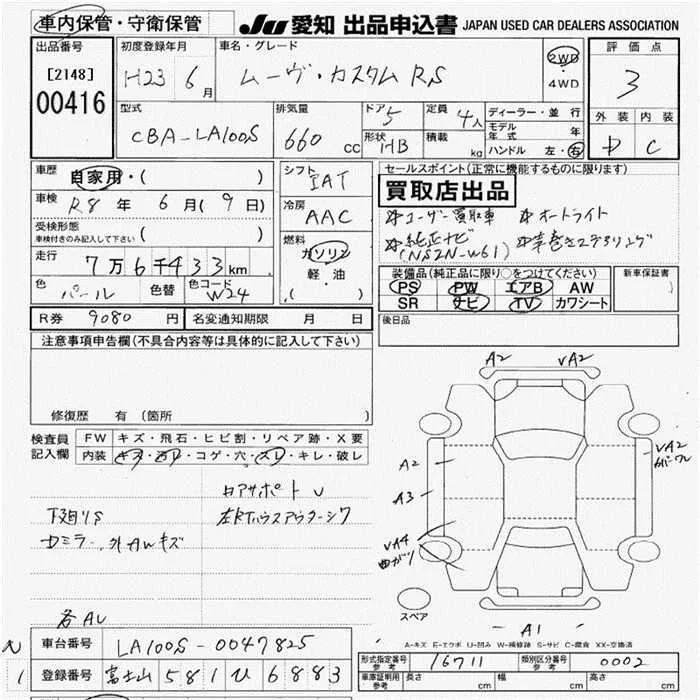 車内保管・守衛保管
JU 愛知 出品申込書 JAPAN USED CAR DEALERS ASSOCIATION
出品番号
[2148]
00416
初度登録年月
H23 6月
車名・グレード
ムーヴ・カスタム RS
2WD
・
4WD
評価点
3
外装 内装
C
型式
CBA-LA100S
排気量
660 cc
ドア 5
形状 HB
定員 4人
積載 kg
ディーラー・並行
モデル年式 年
ハンドル 左・右
車歴
自家用・( )
車検
R8年 6月(9日)
受検形態
車検付きのみ記入して下さい ( )
走行
7万6千433km
色
パール
色替
色コード
W24
シフト
IAT
冷房
AAC
燃料
ガソリン
軽油
( )
セールスポイント(正常に機能するものに限ります)
買取店出品
☆ユーザー買取車 ☆オートライト
☆純正ナビ ☆革巻きステアリング
(NSZN-W61)
装備品(純正品に限り○をつけてください)
PS PW エアB AW
SR ナビ TV カワシート
新車保証書
( )
後日品
R券 9080円
名変通知期限 月 日
注意事項申告欄(不具合内容等は具体的に記入して下さい)
修復歴 有(箇所
検査員記入欄
FW キズ・飛石・ヒビ割・リペア跡・X要
内装 キズ・汚レ・コゲ・穴・スレ・キレ・破レ
コアサポート U
下廻りS
ミラー、外AWキズ
各AU
A2 VA2
A2
VA2
A3
VA4
曲がり
スペア
A1
A-キズ E-エクボ U-凹み W-補修跡 S-サビ C-腐食 XX-交換済
N
1
車台番号 LA100S-0047825
登録番号 富士山 581 ひ 6883
形式指定番号 参考 16711
類別区分番号 参考 0002
車庫証明用 参考 長さ cm 幅 cm 高さ cm